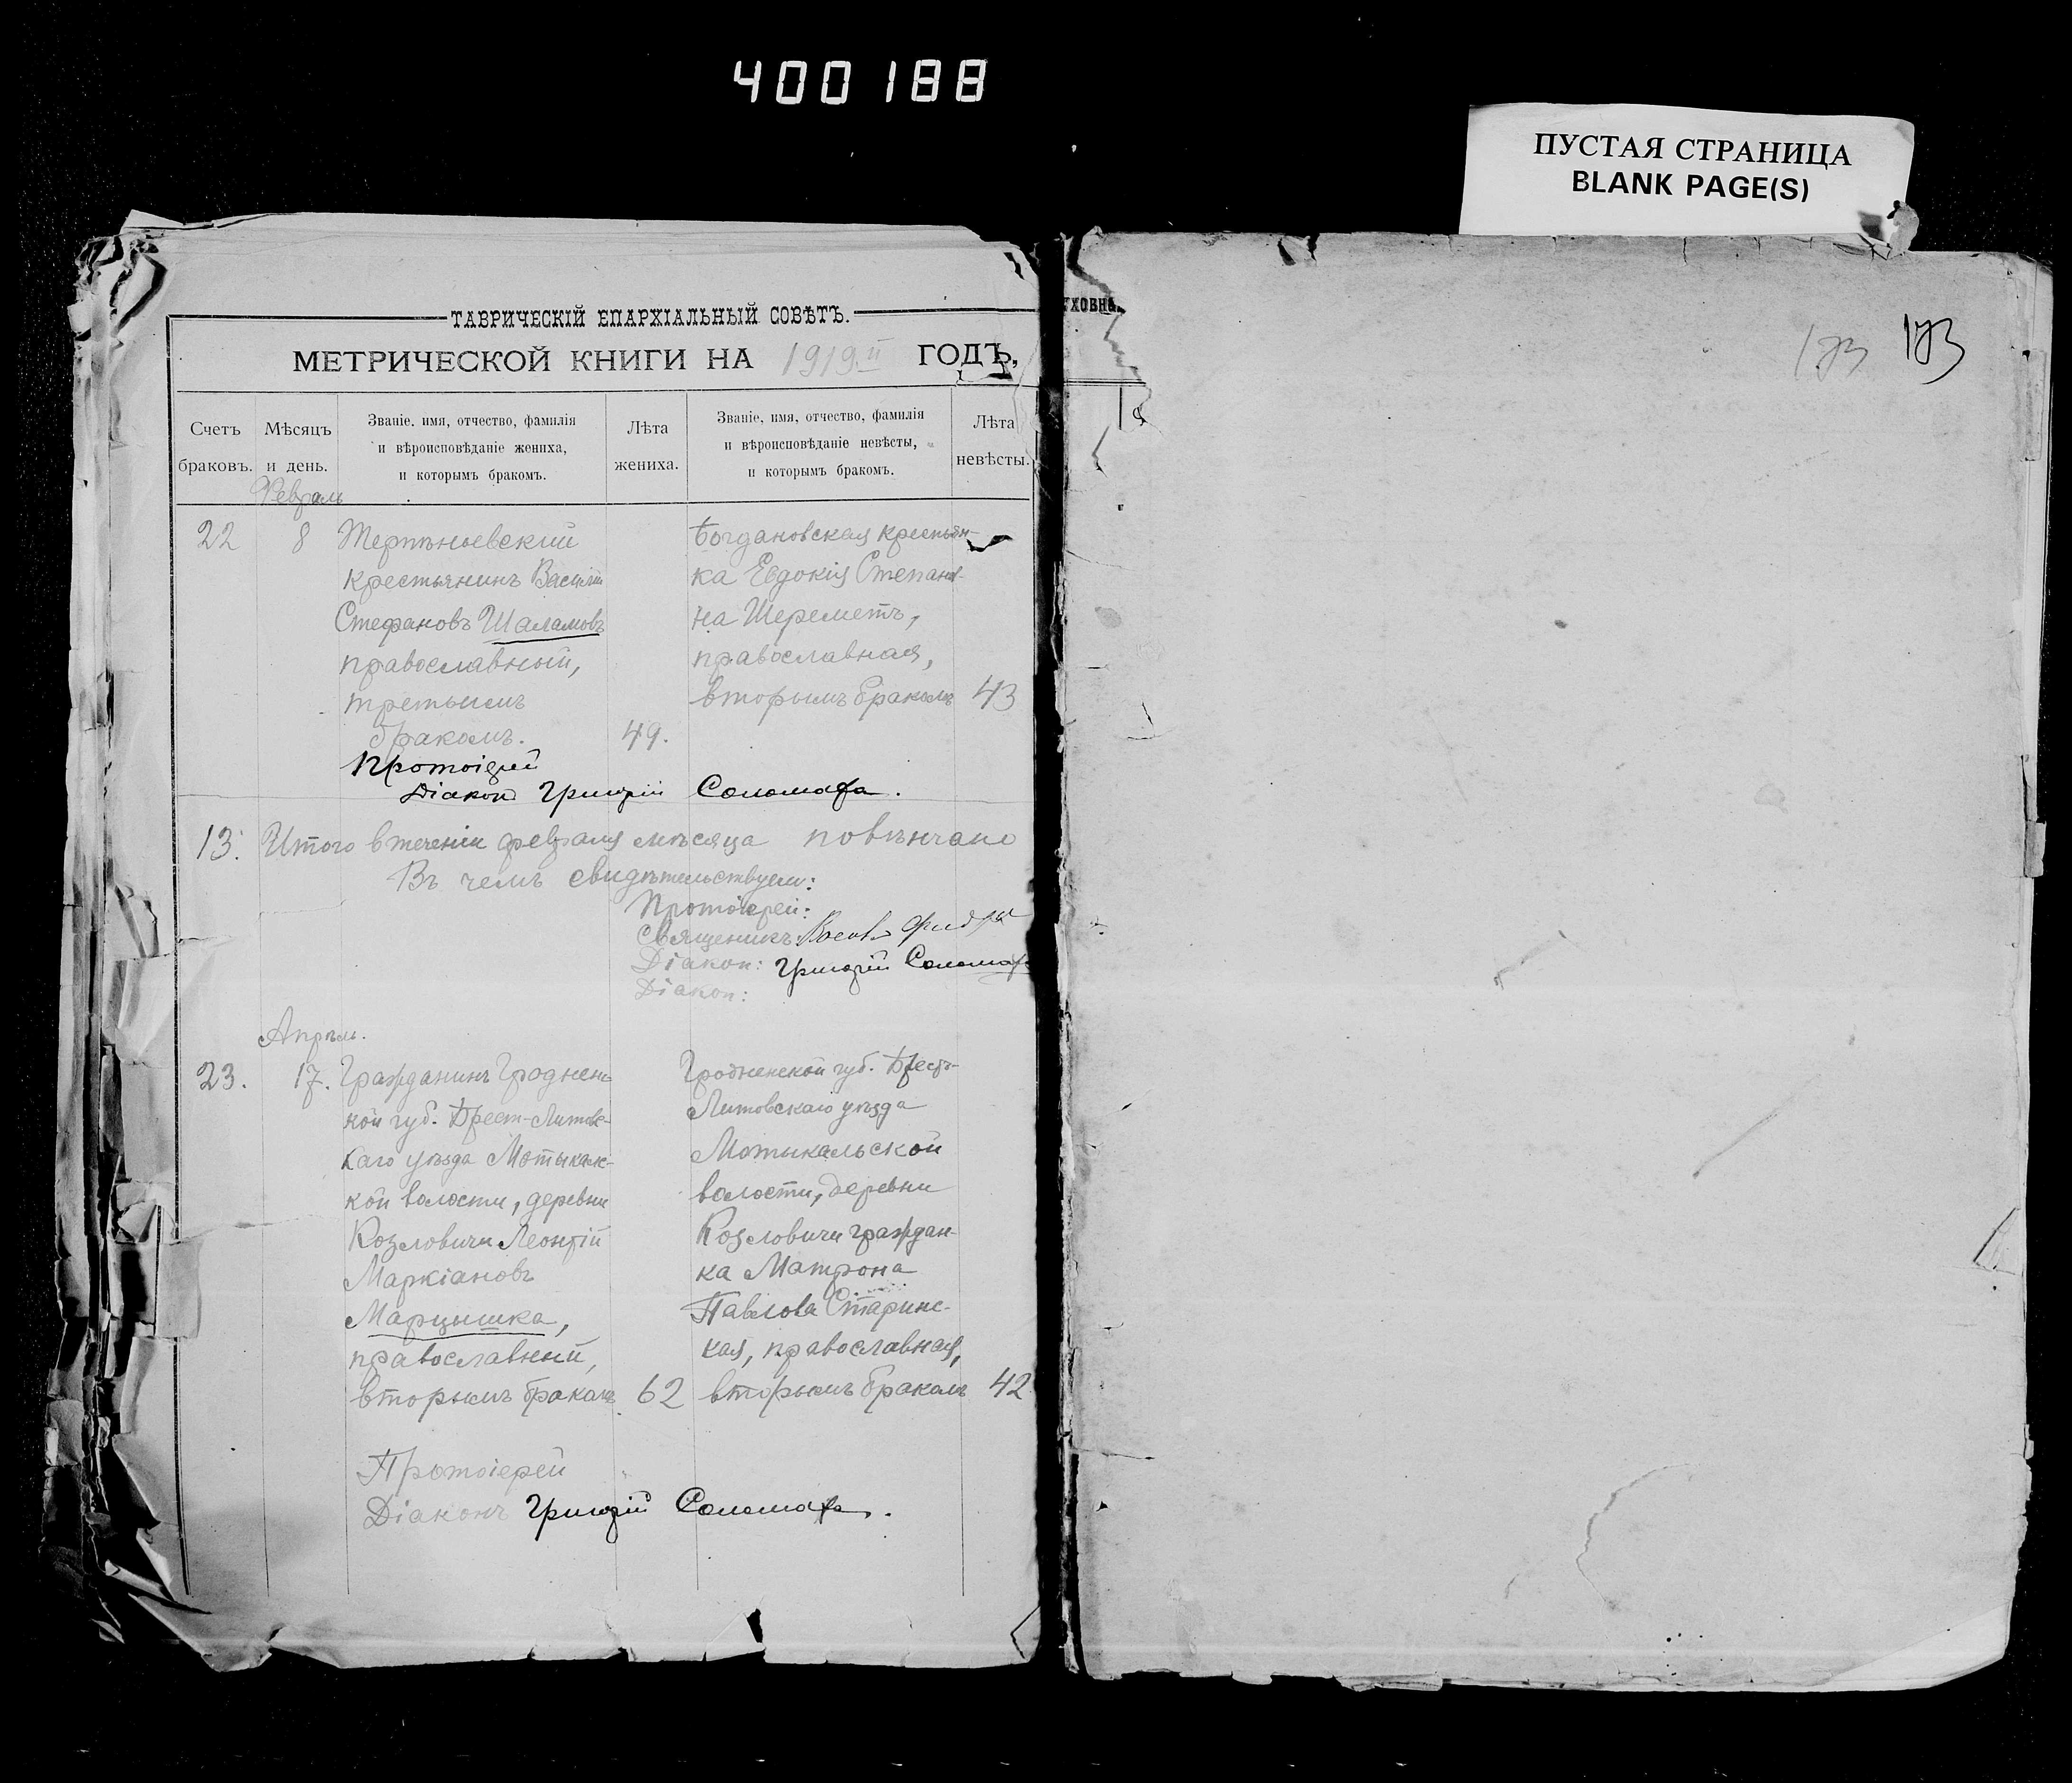 400 188
ПУСТАЯ СТРАНИЦА
BLANK PAGE(S)
ТАВРИЧЕСКІЙ ЕПАРХІАЛЬНЫЙ СОВѢТЪ.
МЕТРИЧЕСКОЙ КНИГИ НА 1919 ГОДЪ,
Счетъ браковъ.
Мѣсяцъ и день.
Званіе, имя, отчество, фамилія
и вѣроисповѣданіе жениха,
и которымъ бракомъ.
Лѣта жениха.
Званіе, имя, отчество, фамилія
и вѣроисповѣданіе невѣсты,
и которымъ бракомъ.
Лѣта невѣсты.
Февраль
22
8
Терпѣньевский
крестьянинъ Василій
Стефановъ Шаламовъ
православный,
третьимъ
бракомъ.
49.
Богдановская крестьян-
ка Евдокія Степанов-
на Шереметъ,
православная,
вторымъ бракомъ
43
Протоіерей
Діаконъ Григорій Соломаха.
13.
Итого в теченіи февраля мѣсяца повѣнчано
Въ чемъ свидѣтельствуем:
Протоіерей:
Священикъ:
Діакон: Григорій Соломаха
Діакон:
Апрѣль.
23.
17.
Гражданинъ Гроднен-
кой губ. Брест-Литовс-
каго уѣзда Мотыкалс-
кой волости, деревни
Козловичи Леонтій
Маркіановъ
Марцышка,
православный,
вторымъ бракомъ
62
Гродненской губ. Брестъ-
Литовскаго уѣзда
Мотыкальской
волости, деревни
Козловичи граждан-
ка Матрона
Павлова Старинс-
кая, православная,
вторымъ бракомъ
42
Протоіерей
Діаконъ Григорій Соломаха.
УХОВНА
173 173